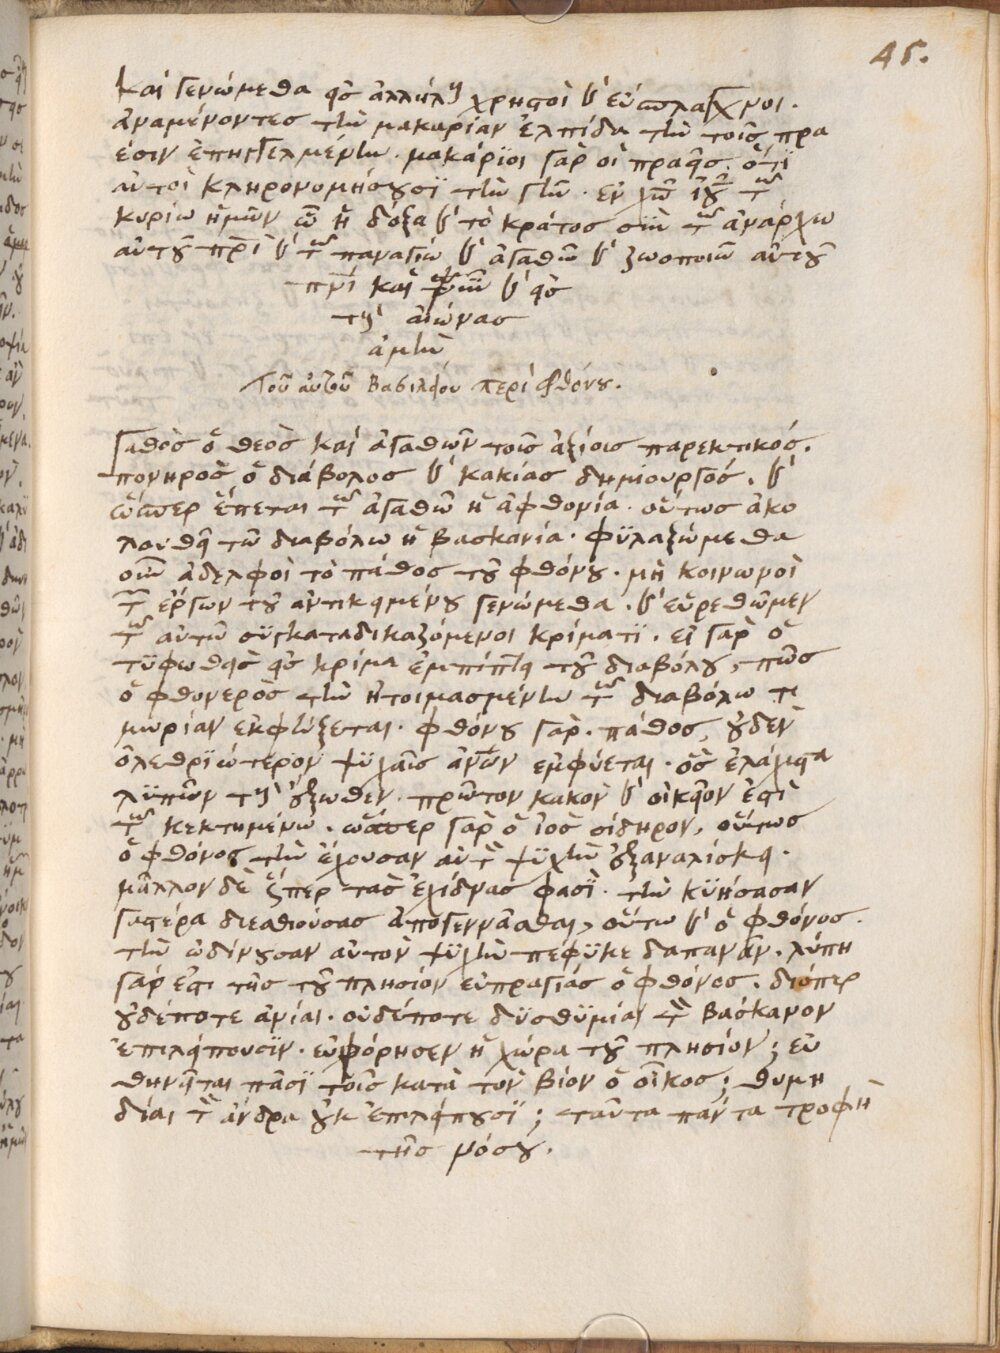 45.
Καὶ γενώμεθα εἰς ἀλλήλους χρηστοὶ καὶ εὔσπλαγχνοι.
ἀναμένοντες τὴν μακαρίαν ἐλπίδα τὴν τοῖς πρα
έσιν ἐπηγγελμένην. μακάριοι γὰρ οἱ πραεῖς. ὅτι
αὐτοὶ κληρονομήσουσϊ τὴν γῆν. ἐν χω ιυ τῶ
κυρίω ἡμῶν ὧ ἡ δόξα καὶ τὸ κράτος σὺν τῶ ἀνάρχω
αὐτοῦ πρὶ καὶ τῶ παναγίω καὶ ἀγαθῶ καὶ ζωοποιῶ αὐτοῦ
πνὶ καὶ νῦν καὶ εἰς
τοὺς αἰώνας
ἀμὴν
Τοῦ αὐτοῦ Βασιλείου περὶ φθόνου.
γαθὸς ὁ θεὸς καὶ ἀγαθῶν τοῖς ἀξίοις παρεκτικός.
πονηρὸς ὁ διάβολος καὶ κακίας δημιουργός. καὶ
ὥσπερ ἕπεται τῶ ἀγαθῶ ἡ ἀφθονία. οὕτως ἀκο
λουθεῖ τῶ διαβόλω ἡ βασκανία. φϋλαξώμεθα
οὖν ἀδελφοὶ τὸ πάθος τοῦ φθόνου. μὴ κοινωνοὶ
τῶν ἔργων τοῦ ἀντικειμένου γενώμεθα. καὶ εὑρεθῶμεν
τῶ αὐτῶ συγκαταδικαζόμενοι κρίματϊ. εἰ γὰρ ὁ
τϋφωθεὶς εἰς κρίμα ἐμπίπτει τοῦ διαβόλου, πῶς
ὁ φθονερὸς τὴν ἡτοιμασμένην τῶ διαβόλω τι
μωρίαν ἐκφεύξεται. φθόνου γὰρ. πάθος, οὐδὲν
ὀλεθρϊώτερον ψϋχαῖς ἀνῶν ἐμφύεται. ὃς ἐλάχιστα
λϋπῶν τοὺς ἔξωθεν. πρῶτον κακὸν καὶ οἰκεῖον ἐστὶ
τῶ κεκτημένω. ὥσπερ γὰρ ὁ ἰὸς σίδηρον, οὕτως
ὁ φθόνος τὴν ἔχουσαν αὐτὸν ψϋχὴν ἐξαναλίσκει.
μᾶλλον δὲ ὥσπερ τὰς ἐχίδνας φασῒ. τὴν κϋήσασαν
γαστέρα διεσθιούσας ἀπογεννᾶσθαι, οὕτω καὶ ὁ φθόνος.
τὴν ὠδίνουσαν αὐτὸν ψϋχὴν πέφϋκε δαπανᾶν. λύπη
γάρ ἐστι τῆς τοῦ πλησίον εὐπραγίας ὁ φθόνος. διόπερ
οὐδέποτε ἀνίαι. οὐδέποτε δϋσθϋμίαι τὸν βάσκανον
ἐπιλείπουσϊν. εὐφόρησεν ἡ χώρα τοῦ πλησίον; εὐ
θηνεῖται πᾶσϊ τοῖς κατὰ τὸν βίον ὁ οἶκος; θυμη
δίαι τὸν ἄνδρα οὐκ ἐπιλείπουσϊ; ταῦτα πάντα τροφὴ
τῆς νόσου.